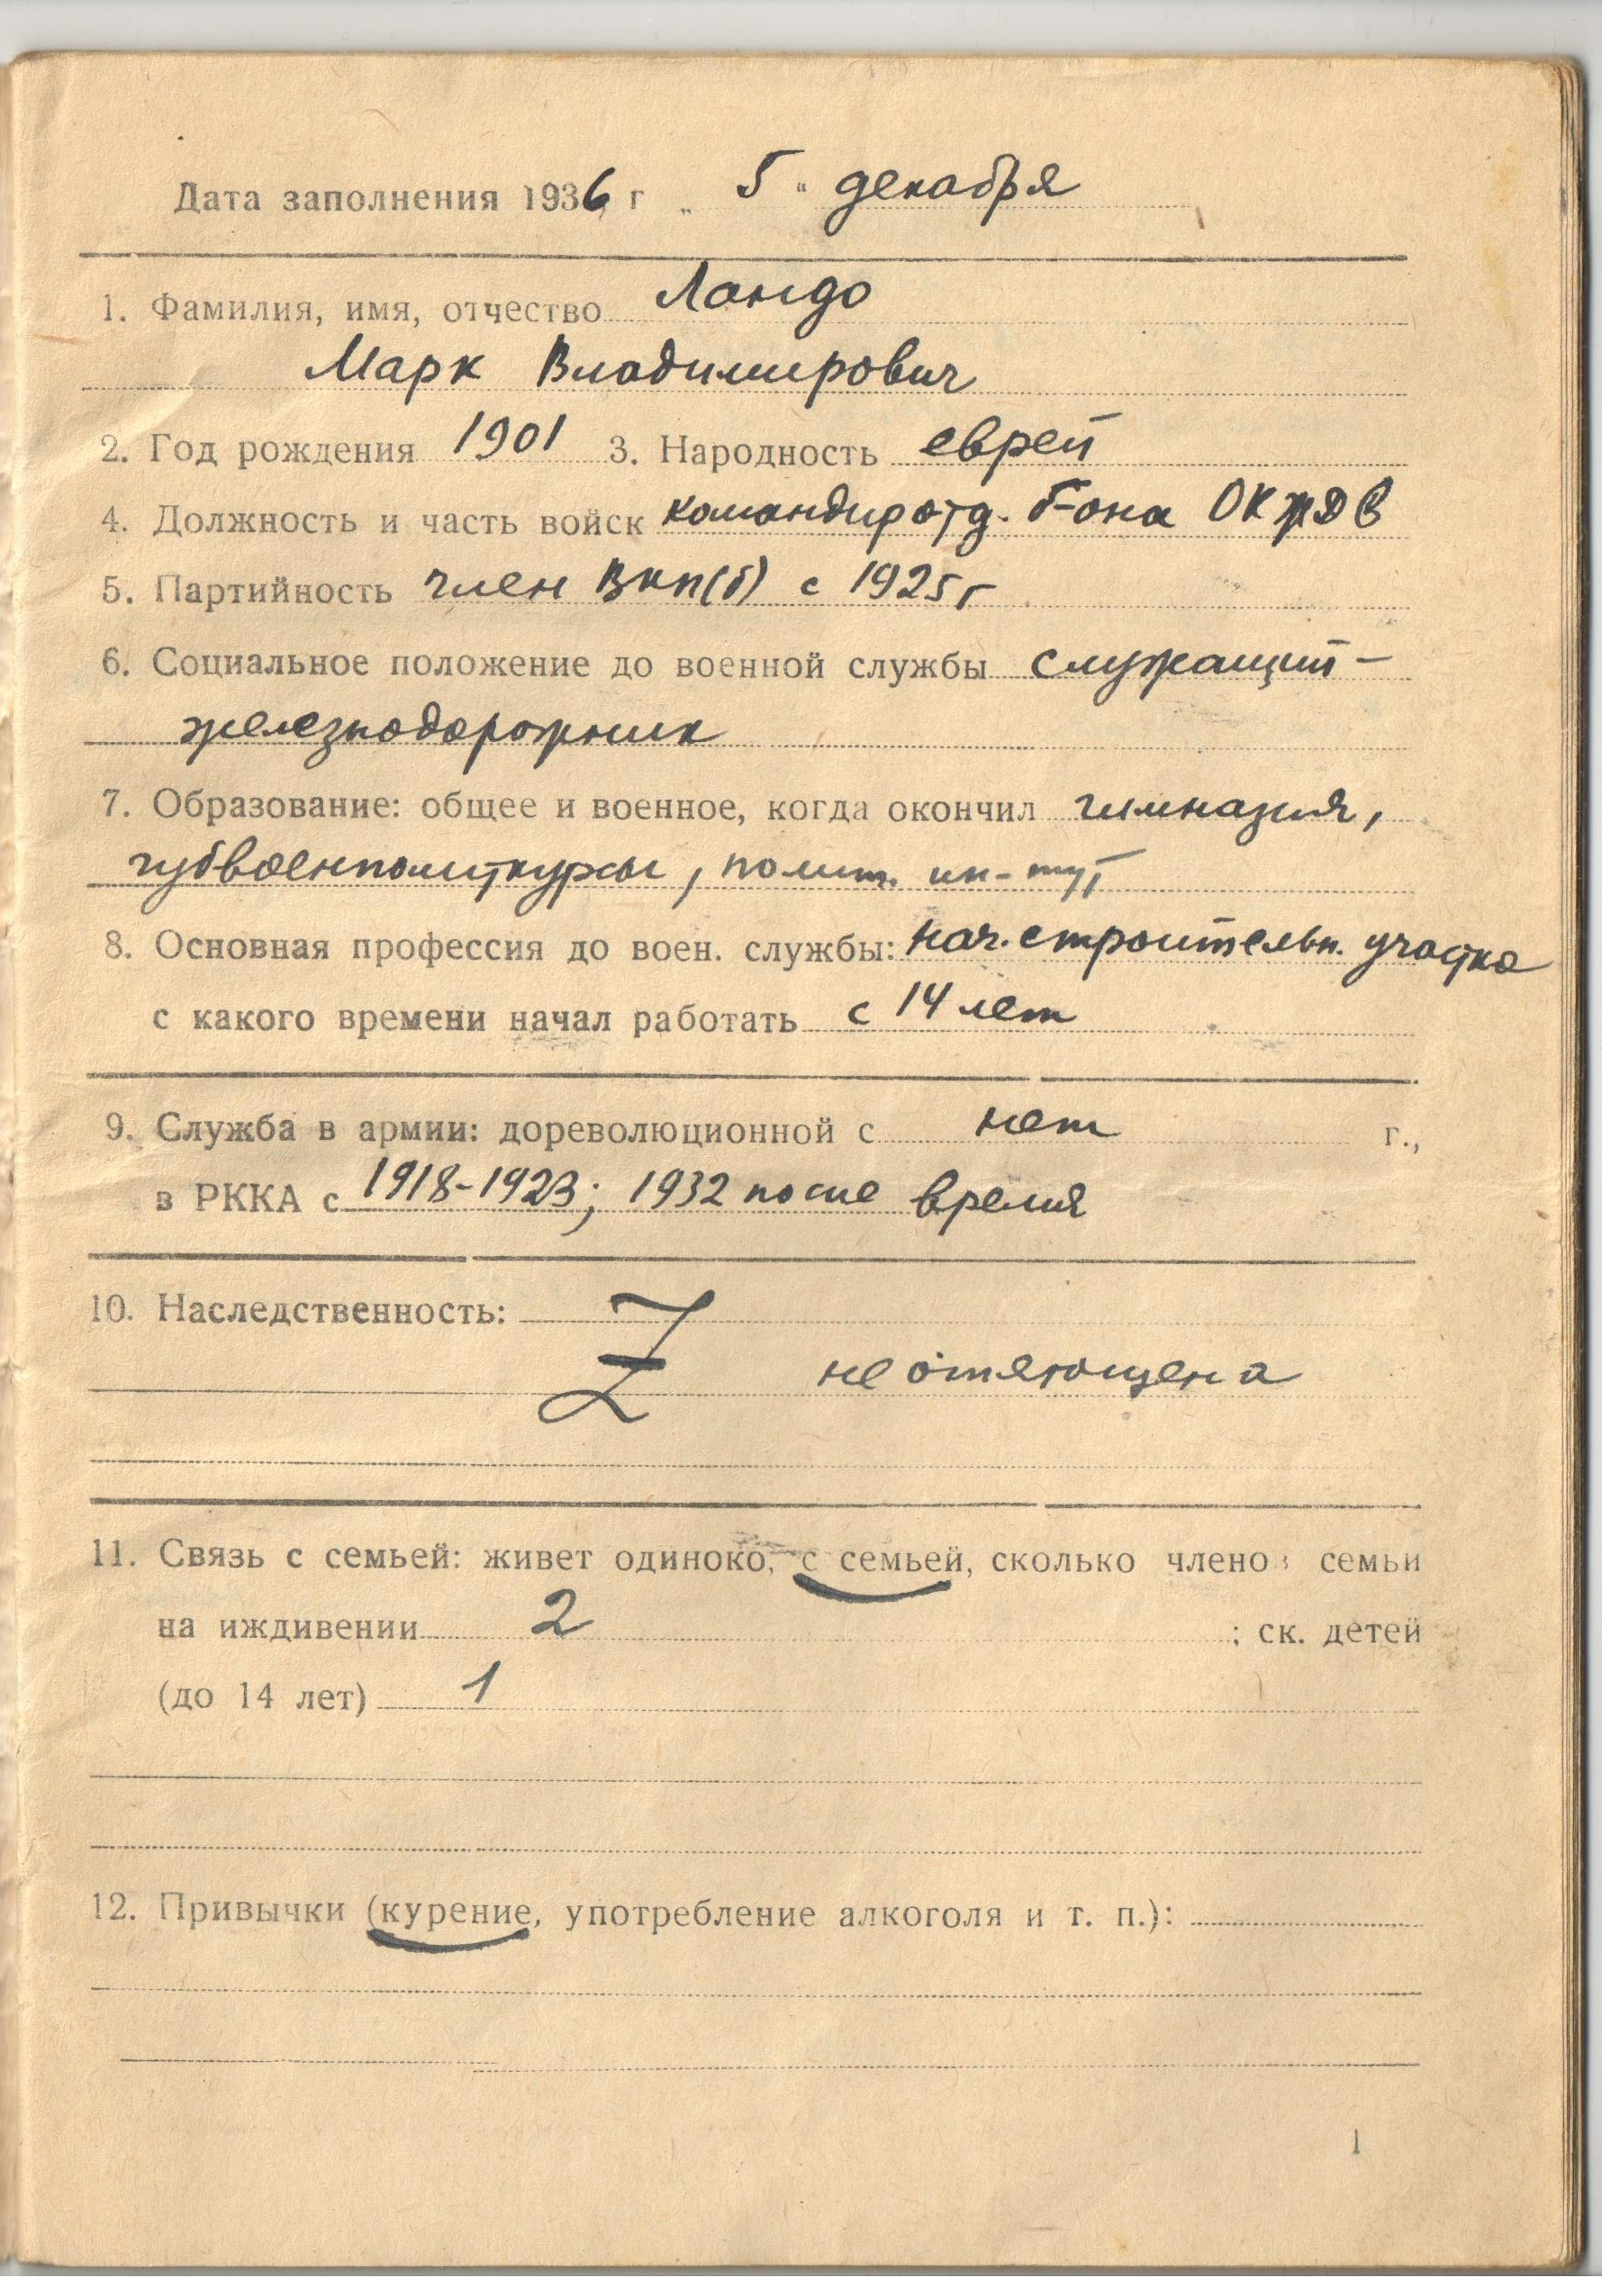 Дата заполнения 1936 г „ 5 " декабря
1. Фамилия, имя, отчество Ландо
Марк Владимирович
2. Год рождения 1901 3. Народность еврей
4. Должность и часть войск командир отд. б-она ОКЖДВ
5. Партийность член ВКП(б) с 1925 г
6. Социальное положение до военной службы служащий-
железнодорожник
7. Образование: общее и военное, когда окончил гимназия,
губвоенполиткурсы, полит. ин-тут
8. Основная профессия до воен. службы: нач. строительн. участка
с какого времени начал работать с 14 лет
9. Служба в армии: дореволюционной с нет г.,
в РККА с 1918-1923; 1932 после время
10. Наследственность:
Z не отягощена
11. Связь с семьей: живет одиноко, с семьей, сколько членов семьи
на иждивении 2 ; ск. детей
(до 14 лет) 1
12. Привычки (курение, употребление алкоголя и т. п.):
1